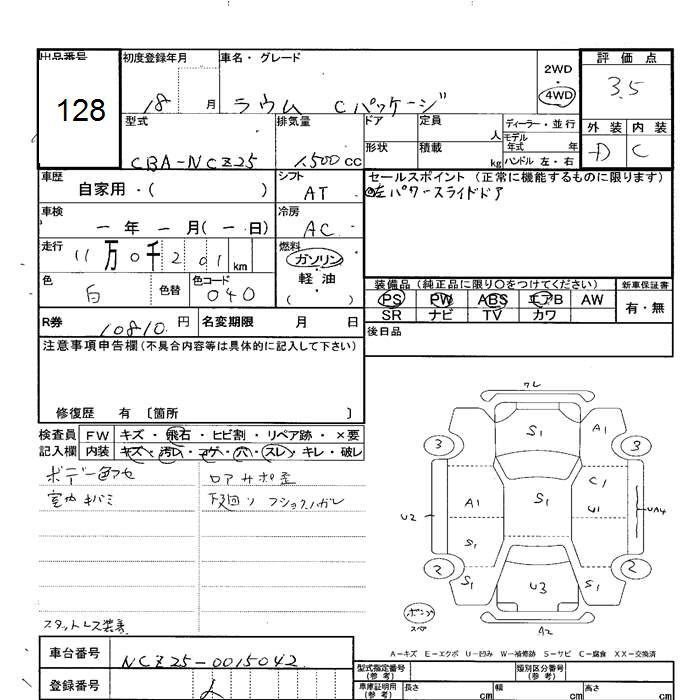 出品番号 128
初度登録年月 18 月
車名・グレード ラウム Cパッケージ
2WD
4WD
評価点 3.5
型式 CBA-NCZ25
排気量 1,500 cc
ドア 定員 人
形状 積載 kg
ディーラー・並行
モデル年式 年
ハンドル 左・右
外装 内装
D C
車歴 自家用・( )
シフト AT
セールスポイント (正常に機能するものに限ります)
左パワースライドドア
車検 ー年ー月(ー日)
冷房 AC
走行 11万0千201km
燃料 ガソリン
軽・油
( )
色 白 色替 色コード 040
装備品 (純正品に限り〇をつけてください) 新車保証書
PS PW ABS エアB AW 有・無
SR ナビ TV カワ
R券 10810 円 名変期限 月 日
後日品
注意事項申告欄(不具合内容等は具体的に記入して下さい)
修復歴 有 〔箇所 〕
検査員 FW キズ・飛石・ヒビ割・リペア跡・×要
記入欄 内装 キズ・汚レ・コゲ・穴・スレ・キレ・破レ
ボデー色アセ ロアサポ歪
室内キバミ
スタットレス装着
ワレ
S1 A1
3 3
A1 S1 C1 U1
U2 UA4
S1
2 2
S1 U3 S1
A2
スペア
A-キズ E-エクボ U-凹み W-補修跡 S-サビ C-腐食 XX-交換済
車台番号 NCZ25-0015042
登録番号
型式指定番号 (参考) 類別区分番号 (参考)
車庫証明用 (参考) 長さ cm 幅 cm 高さ cm